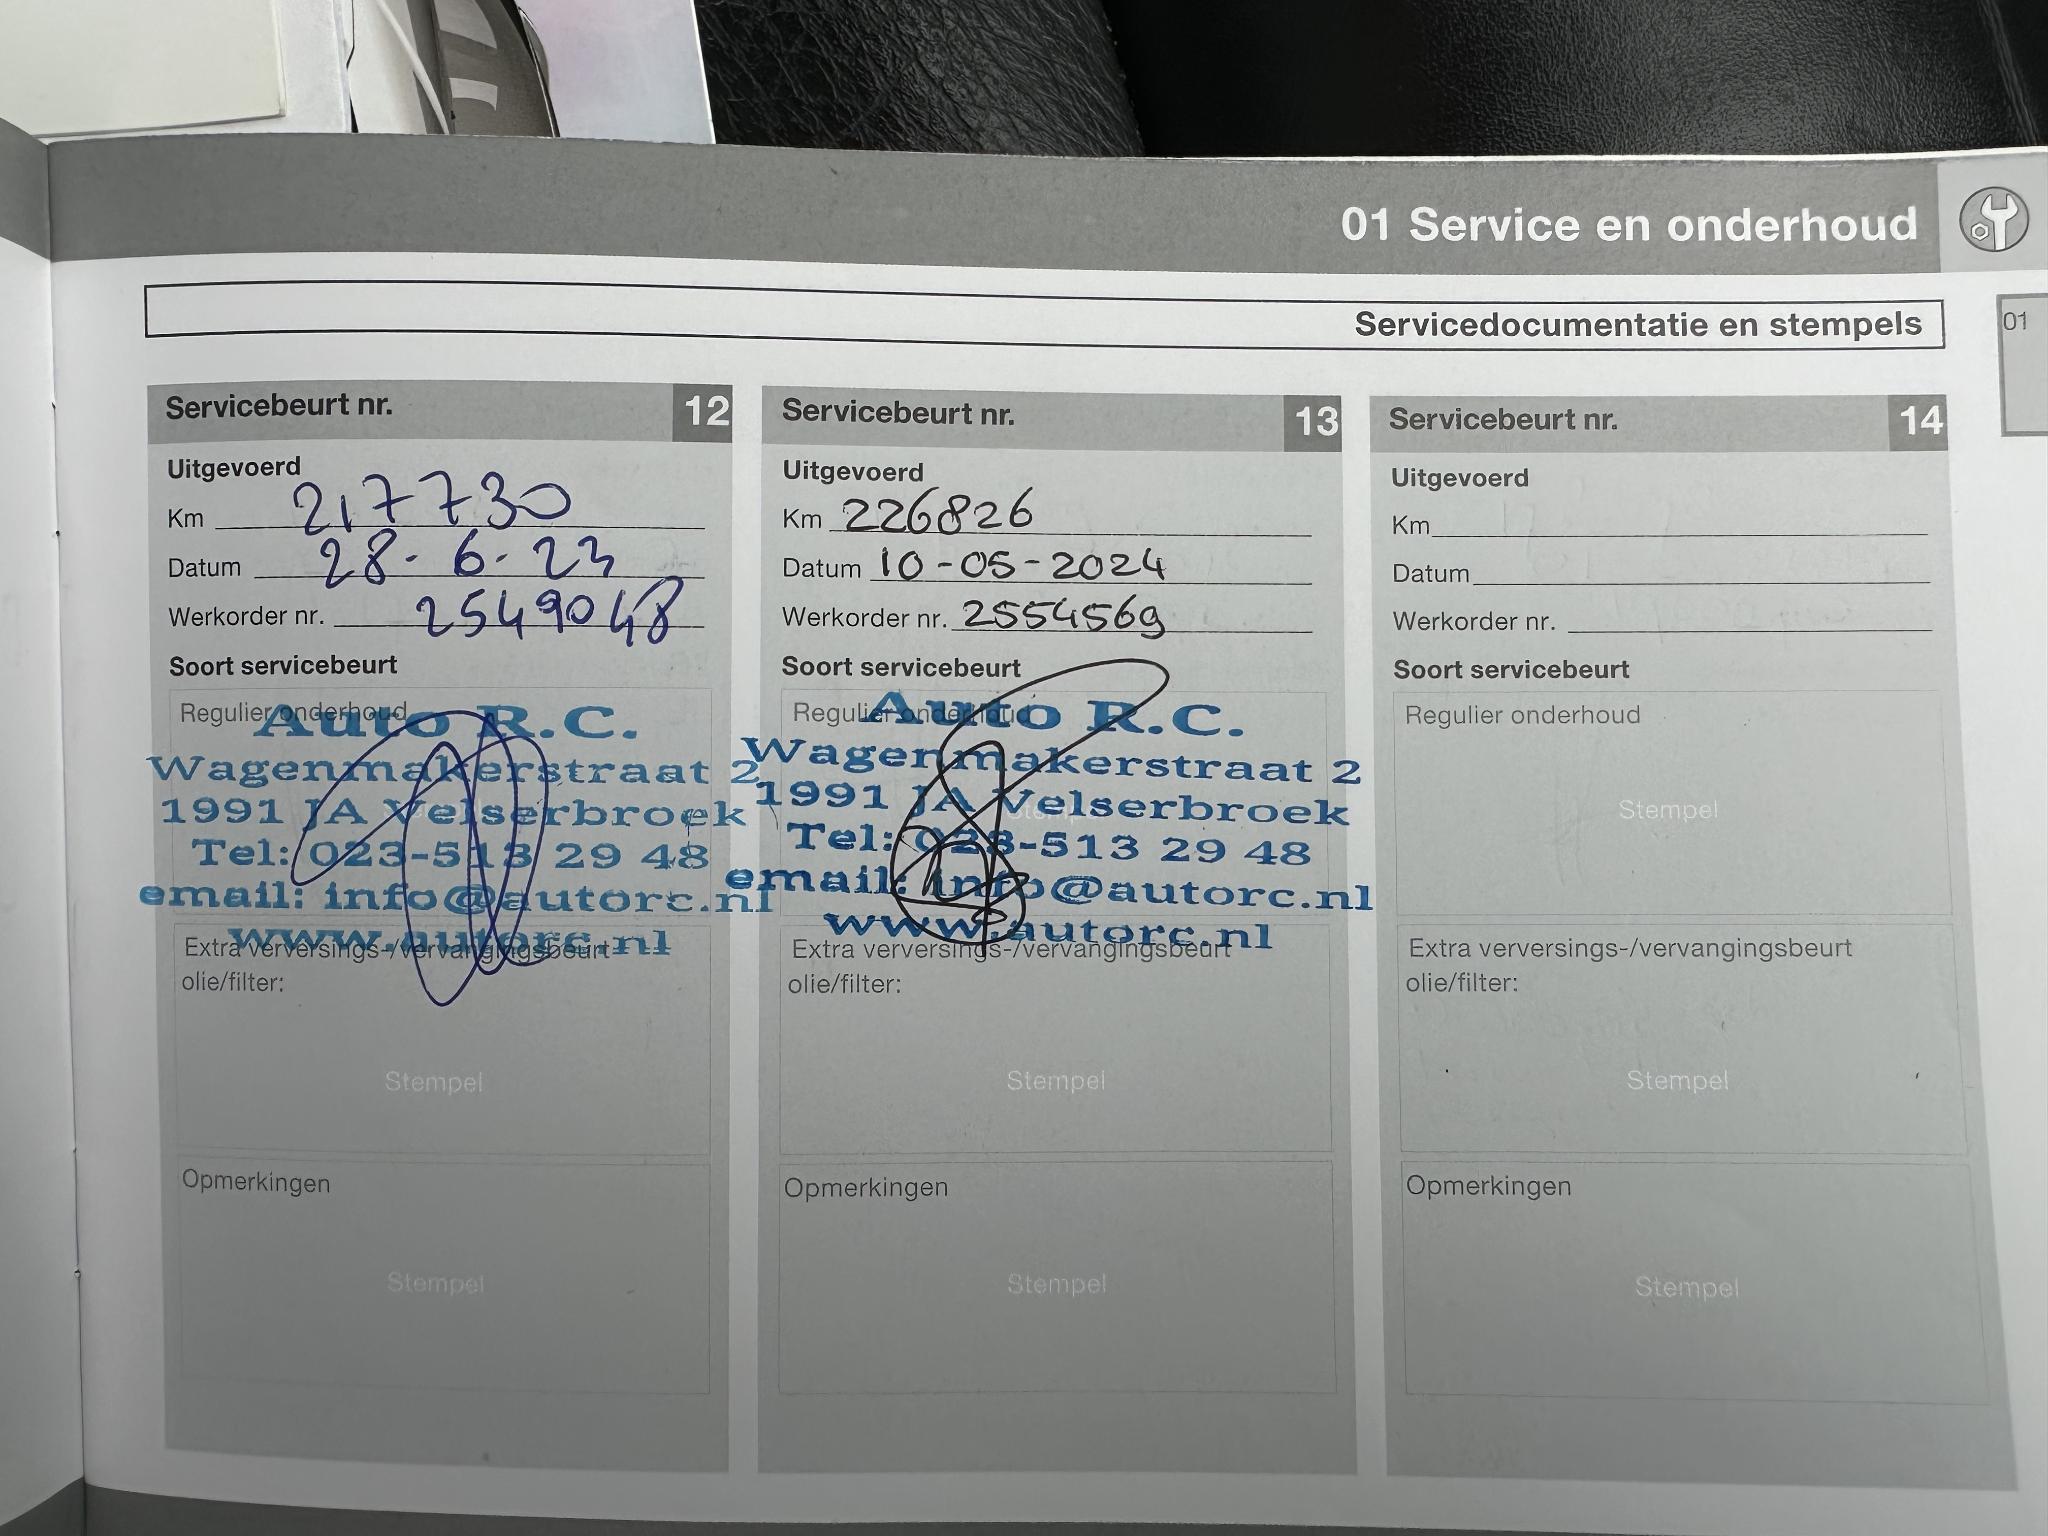 01 Service en onderhoud
Servicedocumentatie en stempels
01
Servicebeurt nr. 12
Uitgevoerd
Km 217730
Datum 28-6-23
Werkorder nr. 2549048
Soort servicebeurt
Regulier onderhoud
Auto R.C.
Wagenmakerstraat 2
1991 JA Velserbroek
Tel: 023-513 29 48
email: info@autorc.nl
www.autorc.nl
Extra verversings-/vervangingsbeurt
olie/filter:
Stempel
Opmerkingen
Stempel
Servicebeurt nr. 13
Uitgevoerd
Km 226826
Datum 10-05-2024
Werkorder nr. 2554569
Soort servicebeurt
Regulier onderhoud
Auto R.C.
Wagenmakerstraat 2
1991 JA Velserbroek
Stempel
Tel: 023-513 29 48
email: info@autorc.nl
www.autorc.nl
Extra verversings-/vervangingsbeurt
olie/filter:
Stempel
Opmerkingen
Stempel
Servicebeurt nr. 14
Uitgevoerd
Km
Datum
Werkorder nr.
Soort servicebeurt
Regulier onderhoud
Stempel
Extra verversings-/vervangingsbeurt
olie/filter:
Stempel
Opmerkingen
Stempel